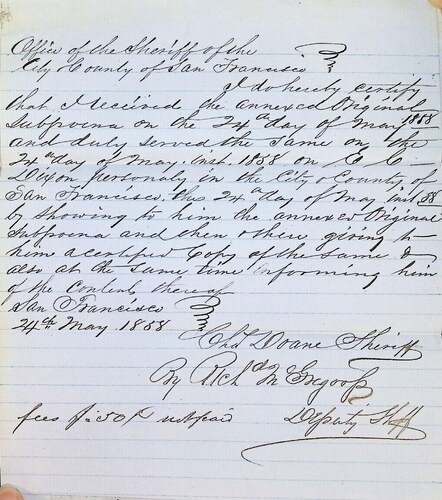 Office of the Sheriff of the
City & County of San Francisco
I do hereby certify
that I received the annexed Original
Subpoena on the 24th day of May 1858
and duly served the same on the
24th day of May inst 1858 on C C
Dixon personaly in the City & County of
San Francisco the 24th day of May inst 58
by showing to him the annexed Original
Subpoena and then & there giving to
him a certified Copy of the same &
also at the same time informing him
of the contents thereof
San Francisco
24th May 1858
Chas Doane Sheriff
By Richd McGregor
Deputy Shff
fees $1.50/ not paid